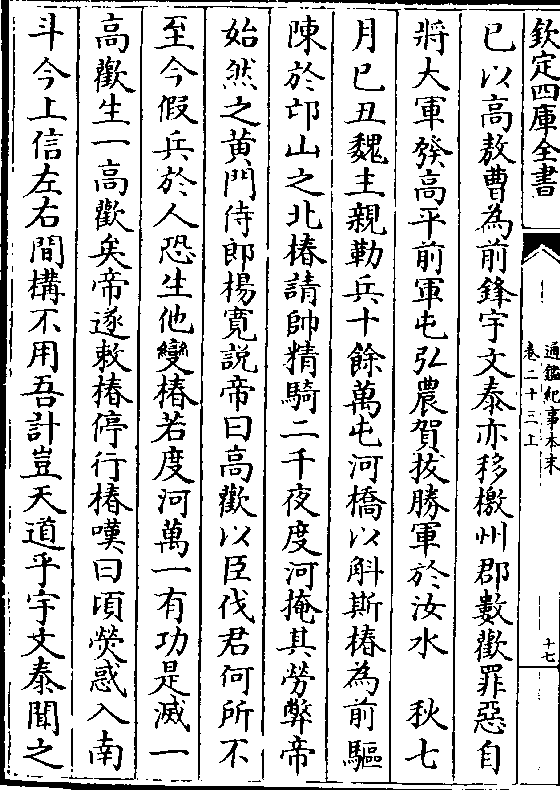 欽定四庫全書
通鑑紀事本末
卷二十三上
十七
已以高敖曹為前鋒宇文泰亦移檄州郡數歡罪惡自
將大軍發高平前軍屯弘農賀拔勝軍於汝水　秋七
月己丑魏主親勒兵十餘萬屯河橋以斛斯椿為前驅
陳於邙山之北椿請帥精騎二千夜度河掩其勞弊帝
始然之黄門侍郎楊寛説帝曰高歡以臣伐君何所不
至今假兵於人恐生他變椿若度河萬一有功是滅一
高歡生一高歡矣帝遂敕椿停行椿嘆曰頃熒惑入南
斗今上信左右間構不用吾計豈天道乎宇文泰聞之